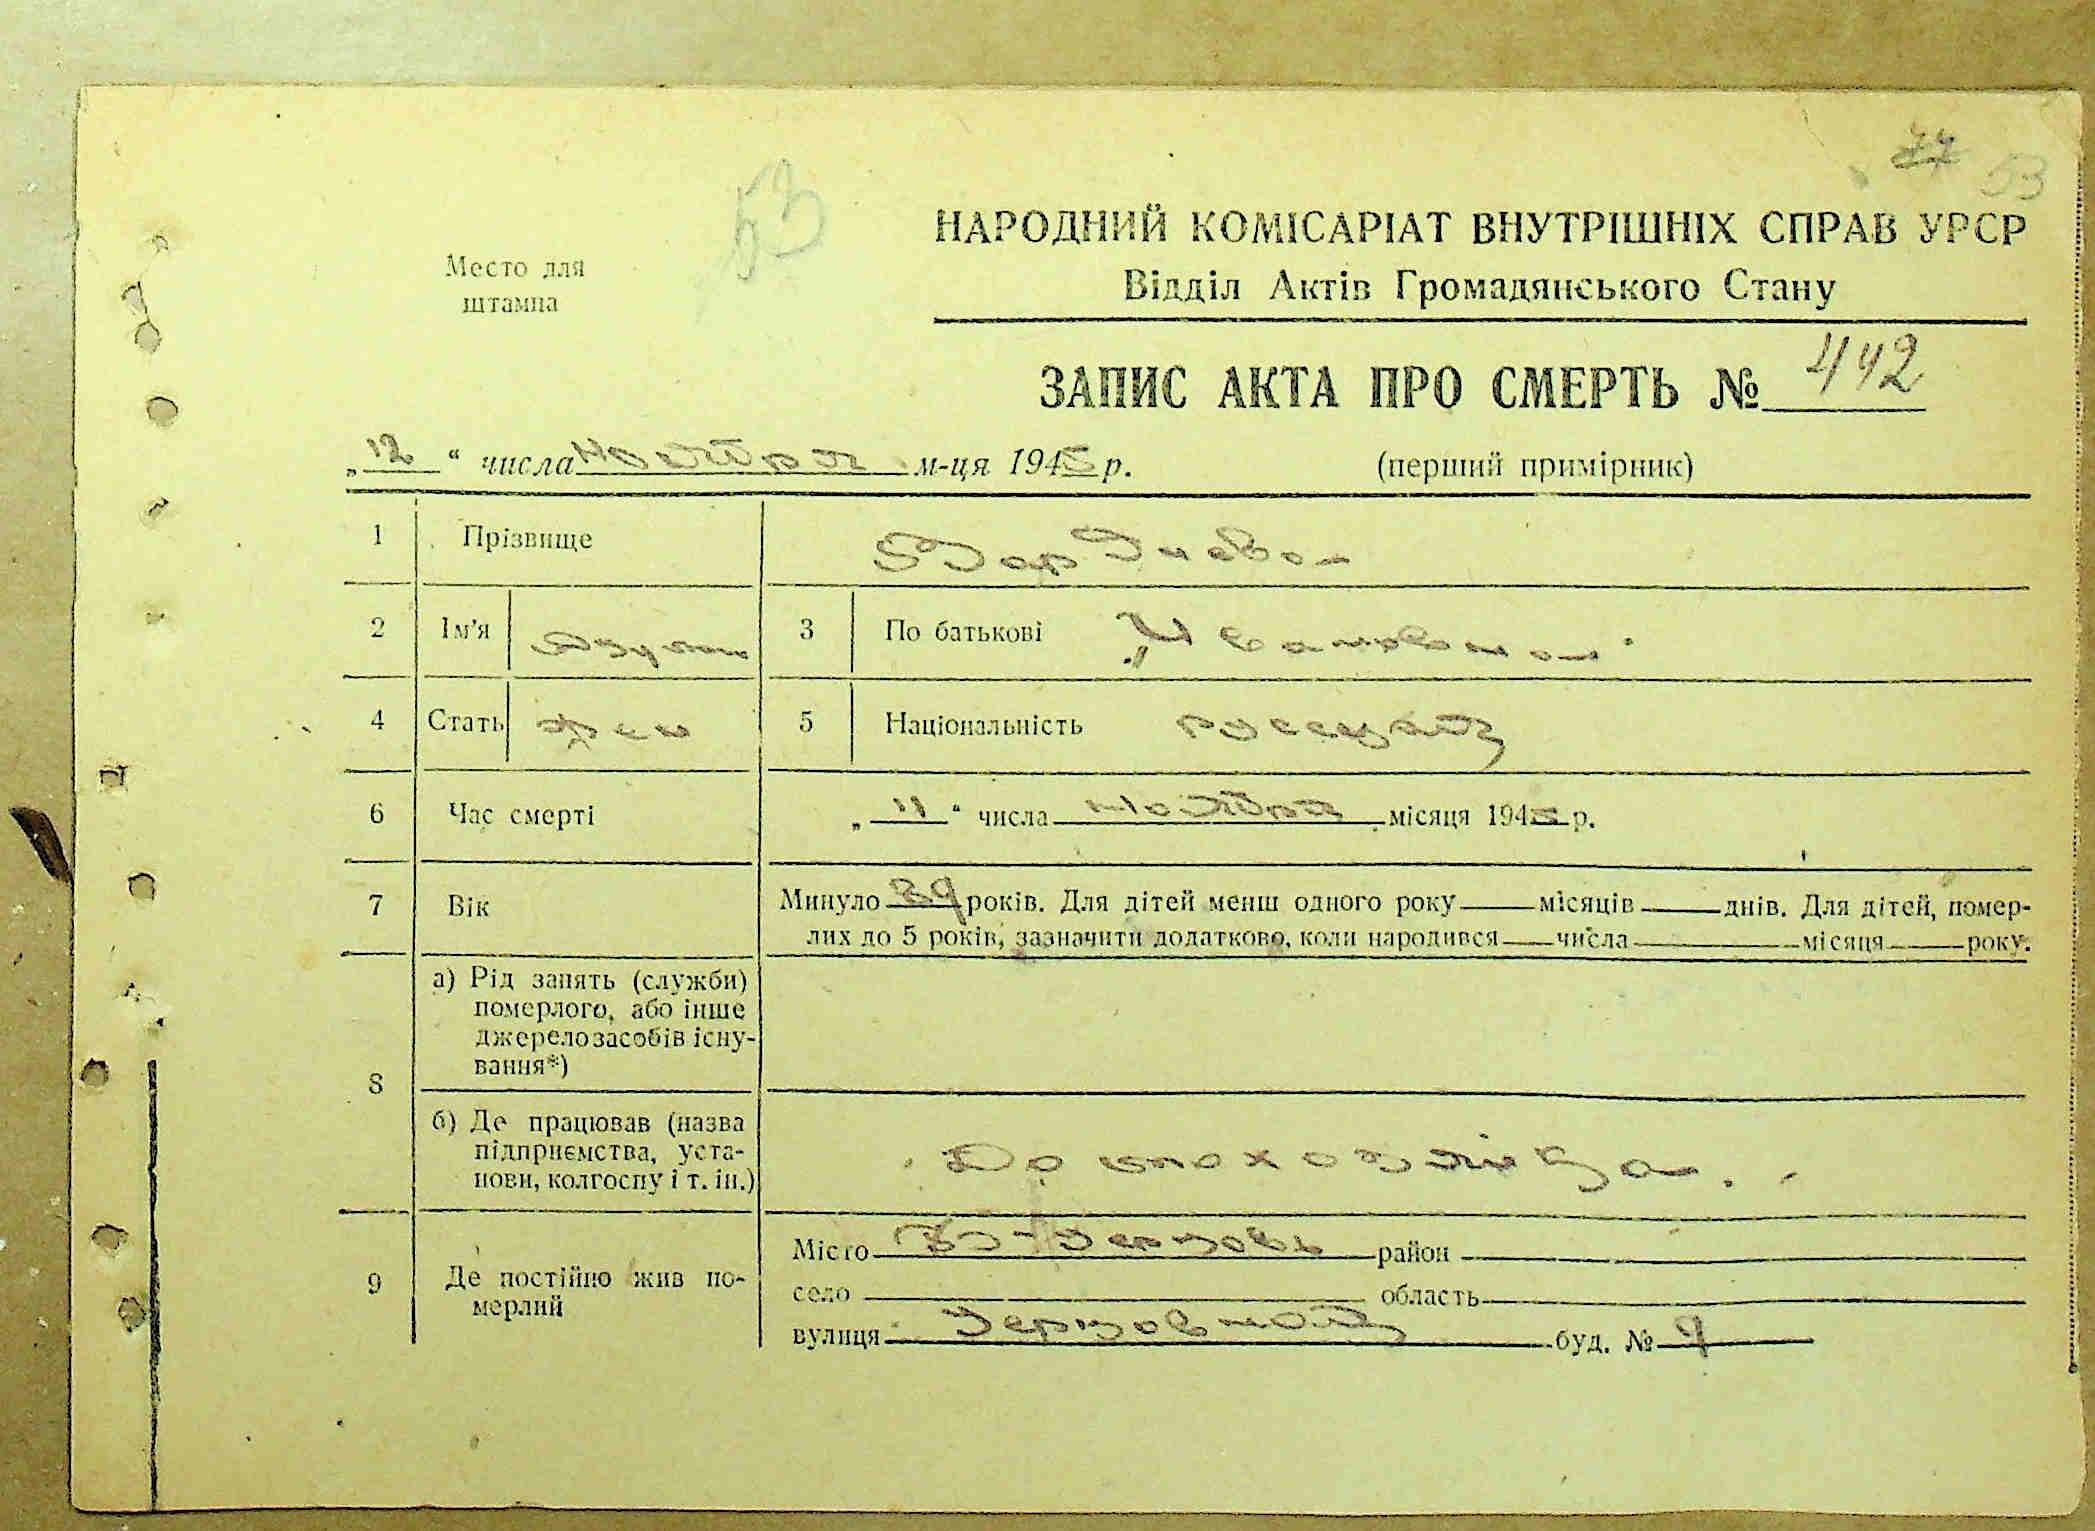 77 53
53
НАРОДНИЙ КОМІСАРІАТ ВНУТРІШНІХ СПРАВ УРСР
Место для
штампа
Відділ Актів Громадянського Стану
ЗАПИС АКТА ПРО СМЕРТЬ № 442
„12“ числа ноября м-ця 1945 р. (перший примірник)
1 Прізвище
2 Ім'я 3 По батькові Ивановна
4 Стать жен 5 Національність
6 Час смерті „11“ числа ноября місяця 1945 р.
7 Вік Минуло 39 років. Для дітей менш одного року місяців днів. Для дітей, помер-
лих до 5 років, зазначити додатково, коли народився числа місяця року.
8 а) Рід занять (служби)
померлого, або інше
джерело засобів існу-
вання*)
б) Де працював (назва
підприємства, уста-
нови, колгоспу і т. ін.)
Домохозяйка.
9 Де постійно жив по-
мерлий
Місто район
село область
вулиця буд. №